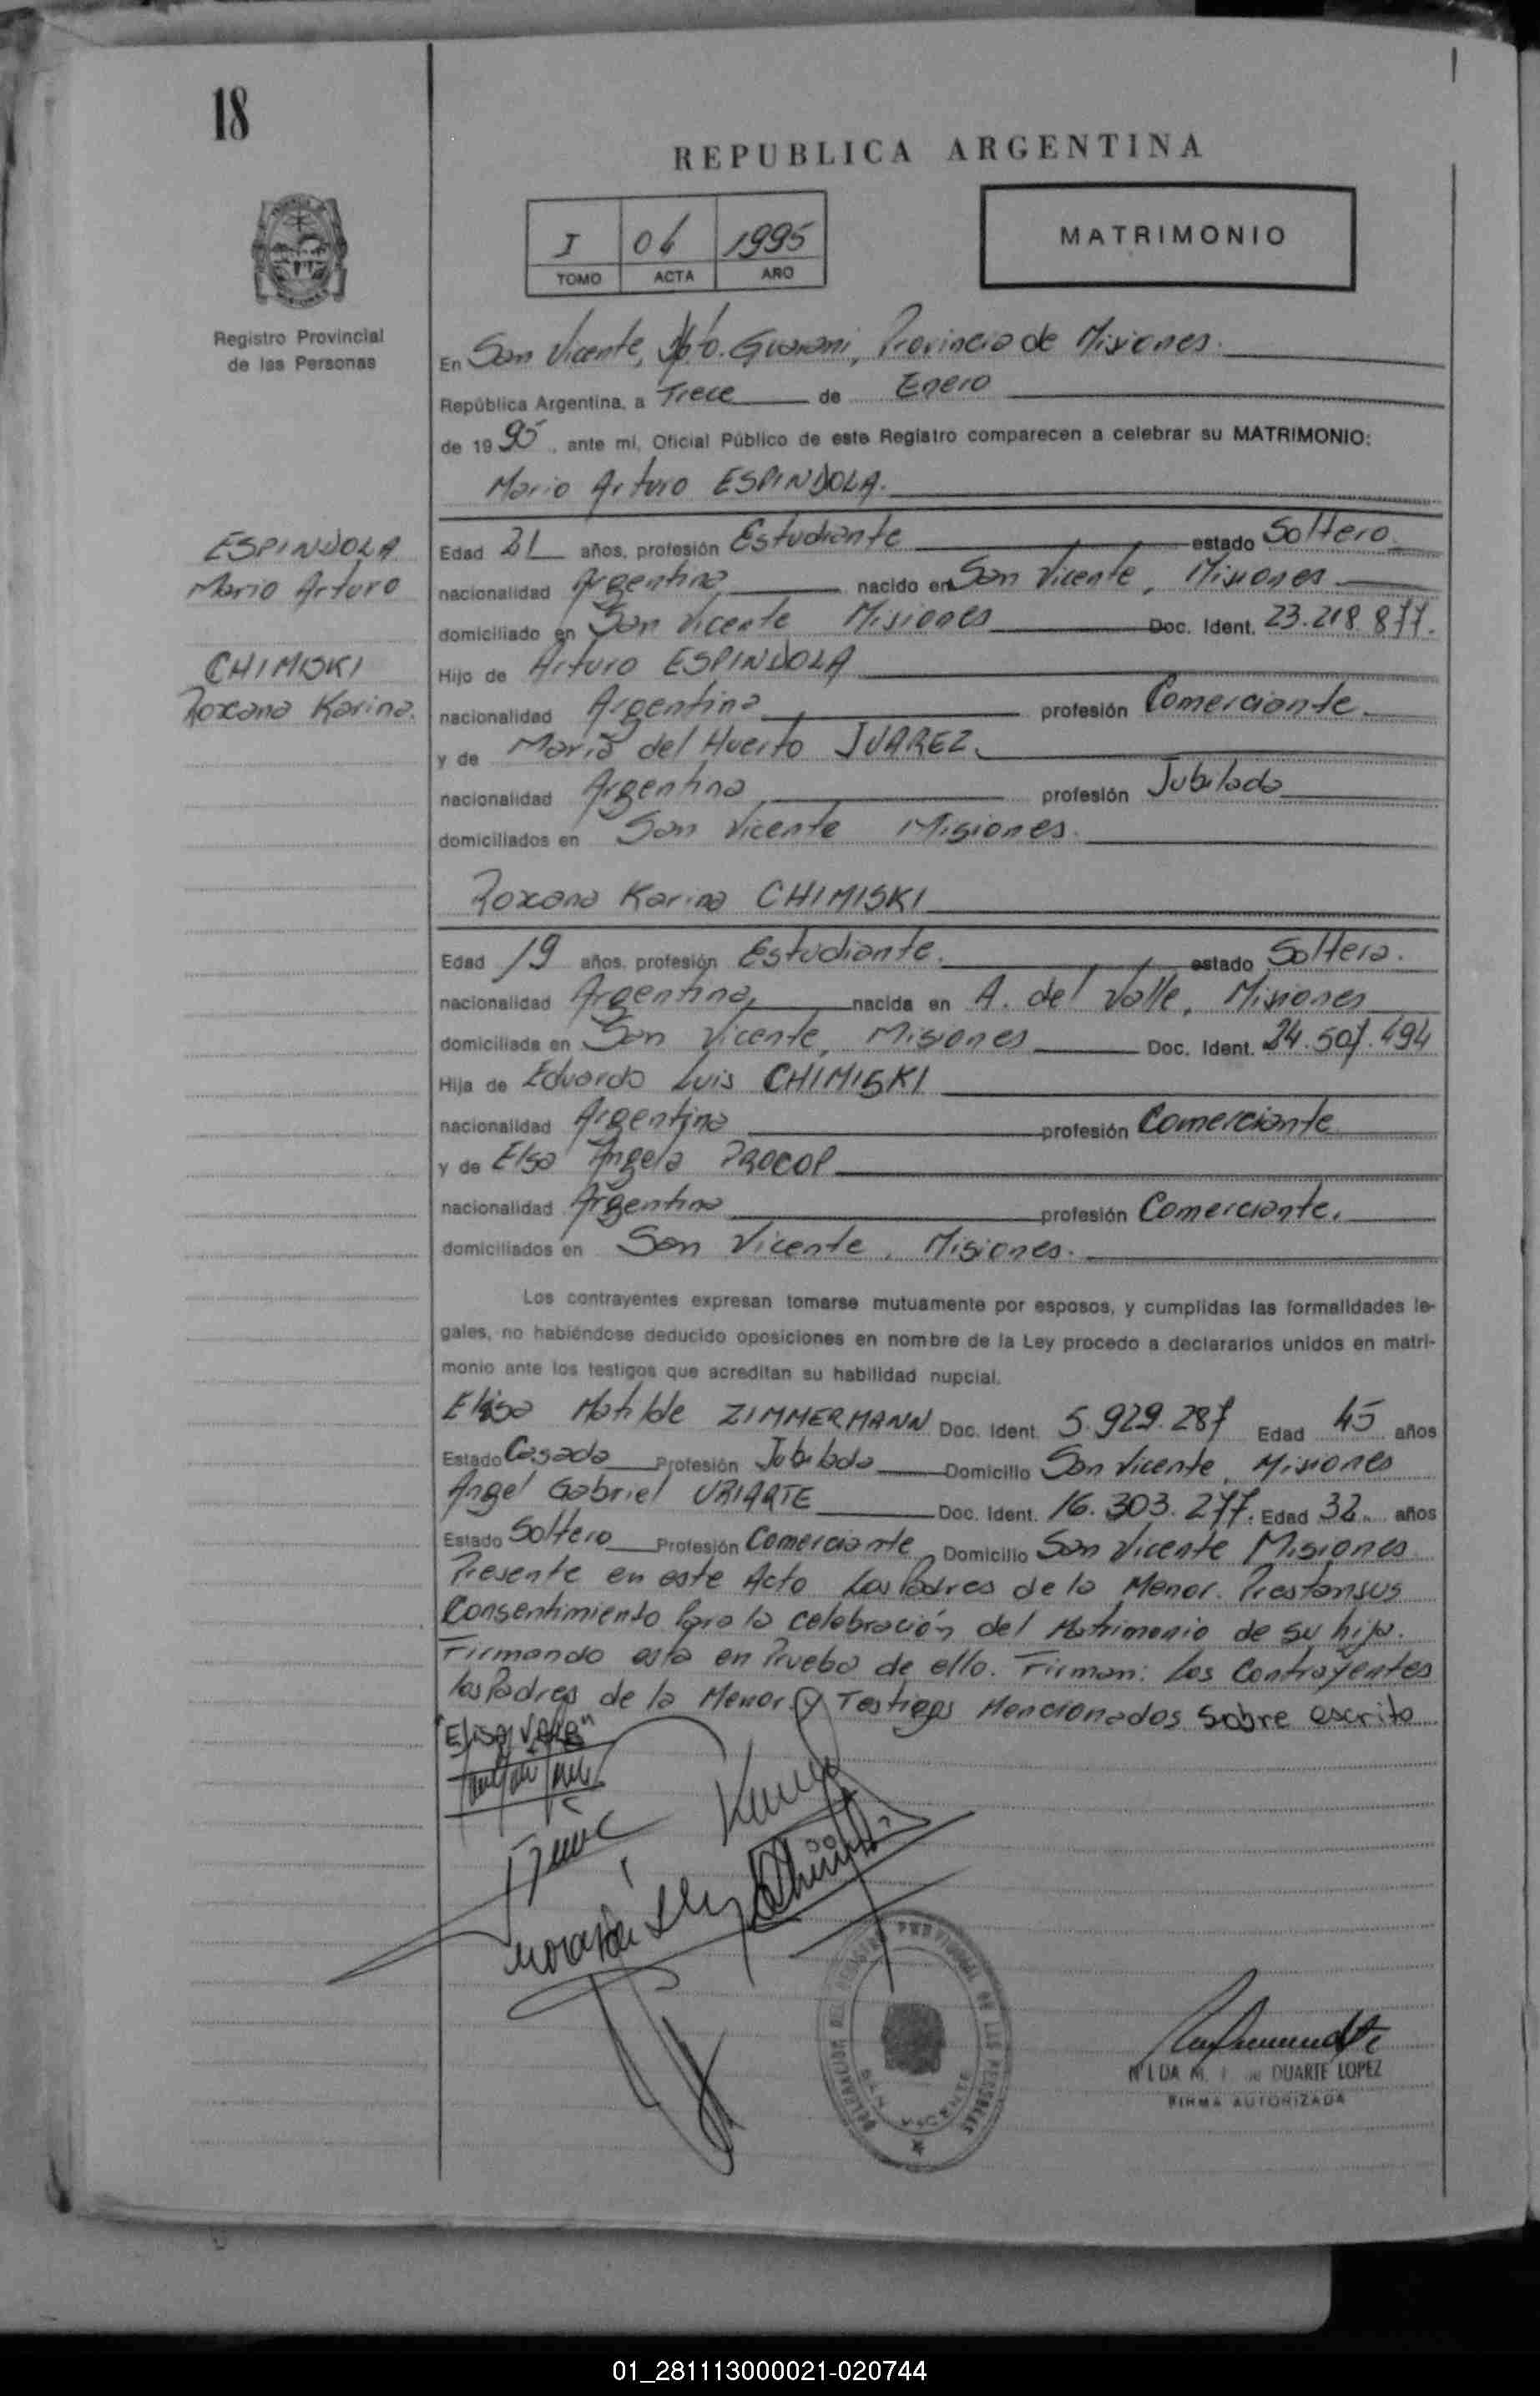 18
REPUBLICA ARGENTINA
I 06 1995
TOMO ACTA AÑO
MATRIMONIO
Registro Provincial
de las Personas
En San Vicente, Dpto. Guarani, Provincia de Misiones.
República Argentina, a Trece de Enero
de 19 95, ante mi, Oficial Público de este Registro comparecen a celebrar su MATRIMONIO:
Mario Arturo ESPINDOLA.
ESPINDOLA
Mario Arturo
CHIMISKI
Roxana Karina.
Edad 21 años, profesión Estudiante estado Soltero.
nacionalidad Argentina nacido en San Vicente, Misiones
domiciliado en San Vicente Misiones Doc. Ident. 23.218.877.
Hijo de Arturo ESPINDOLA
nacionalidad Argentina profesión Comerciante
y de Maria del Huerto JUAREZ
nacionalidad Argentina profesión Jubilada
domiciliados en San Vicente Misiones.
Roxana Karina CHIMISKI
Edad 19 años, profesión Estudiante. estado Soltera.
nacionalidad Argentina, nacida en A. del Valle, Misiones
domiciliada en San Vicente, Misiones Doc. Ident. 24.507.494
Hija de Eduardo Luis CHIMISKI
nacionalidad Argentina profesión Comerciante
y de Elsa Angela PROCOP
nacionalidad Argentina profesión Comerciante.
domiciliados en San Vicente, Misiones.
Los contrayentes expresan tomarse mutuamente por esposos, y cumplidas las formalidades le-
gales, no habiéndose deducido oposiciones en nombre de la Ley procedo a declararlos unidos en matri-
monio ante los testigos que acreditan su habilidad nupcial.
Elisa Matilde ZIMMERMANN Doc. Ident. 5.929.287 Edad 45 años
Estado Casada Profesión Jubilada Domicilio San Vicente, Misiones
Angel Gabriel URIARTE Doc. Ident. 16.303.277. Edad 32 años
Estado Soltero Profesión Comerciante Domicilio San Vicente Misiones
Presente en este Acto los Padres de la Menor. Prestan sus
Consentimiento Para la celebración del Matrimonio de su hija.
Firmando esta en Prueba de ello. Firman: los Contrayentes
los Padres de la Menor y Testigos Mencionados Sobre escrito
"Elisa, Vale"
DELEGACION DEL REGISTRO PROVINCIAL DE LAS PERSONAS
SAN VICENTE
DUARTE LOPEZ
FIRMA AUTORIZADA
01_281113000021-020744